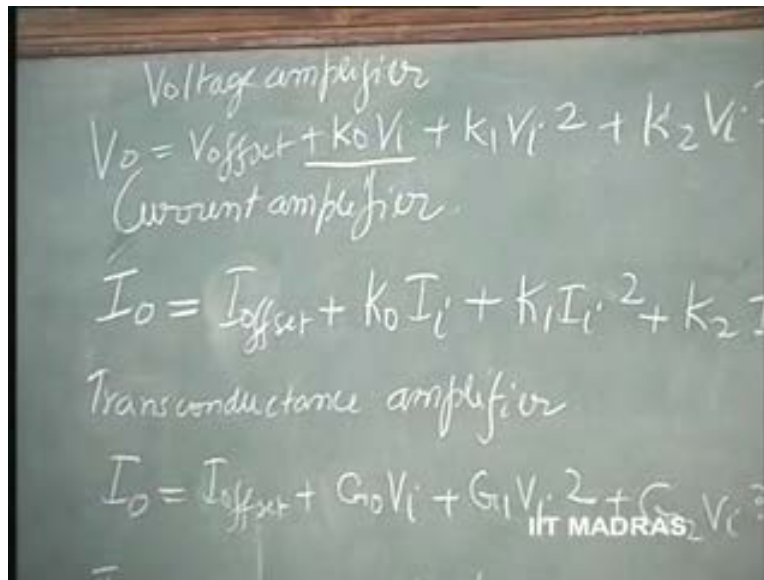 Voltage amplifier
V0 = Voffset + K0 Vi + K1 Vi² + K2 Vi
Current amplifier.
I0 = Ioffset + K0 Ii + K1 Ii² + K2 I
Transconductance amplifier
I0 = Ioffset + G0 Vi + G1 Vi² + G2 Vi³
IIT MADRAS